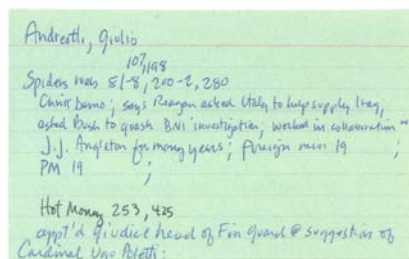 Andreotti, Giulio
107, 198
Spiders Web 81-8, 200-2, 280
Christ Demo; says Reagan asked Italy to help supply Iraq,
asked Bush to quash BNL investigation; worked in collaboration w
J.J. Angleton for many years; foreign min 19 ;
PM 19 ;
Hot Money 253, 425
appt'd Giudice head of Fin guard @ suggestion of
Cardinal Ugo Poletti;